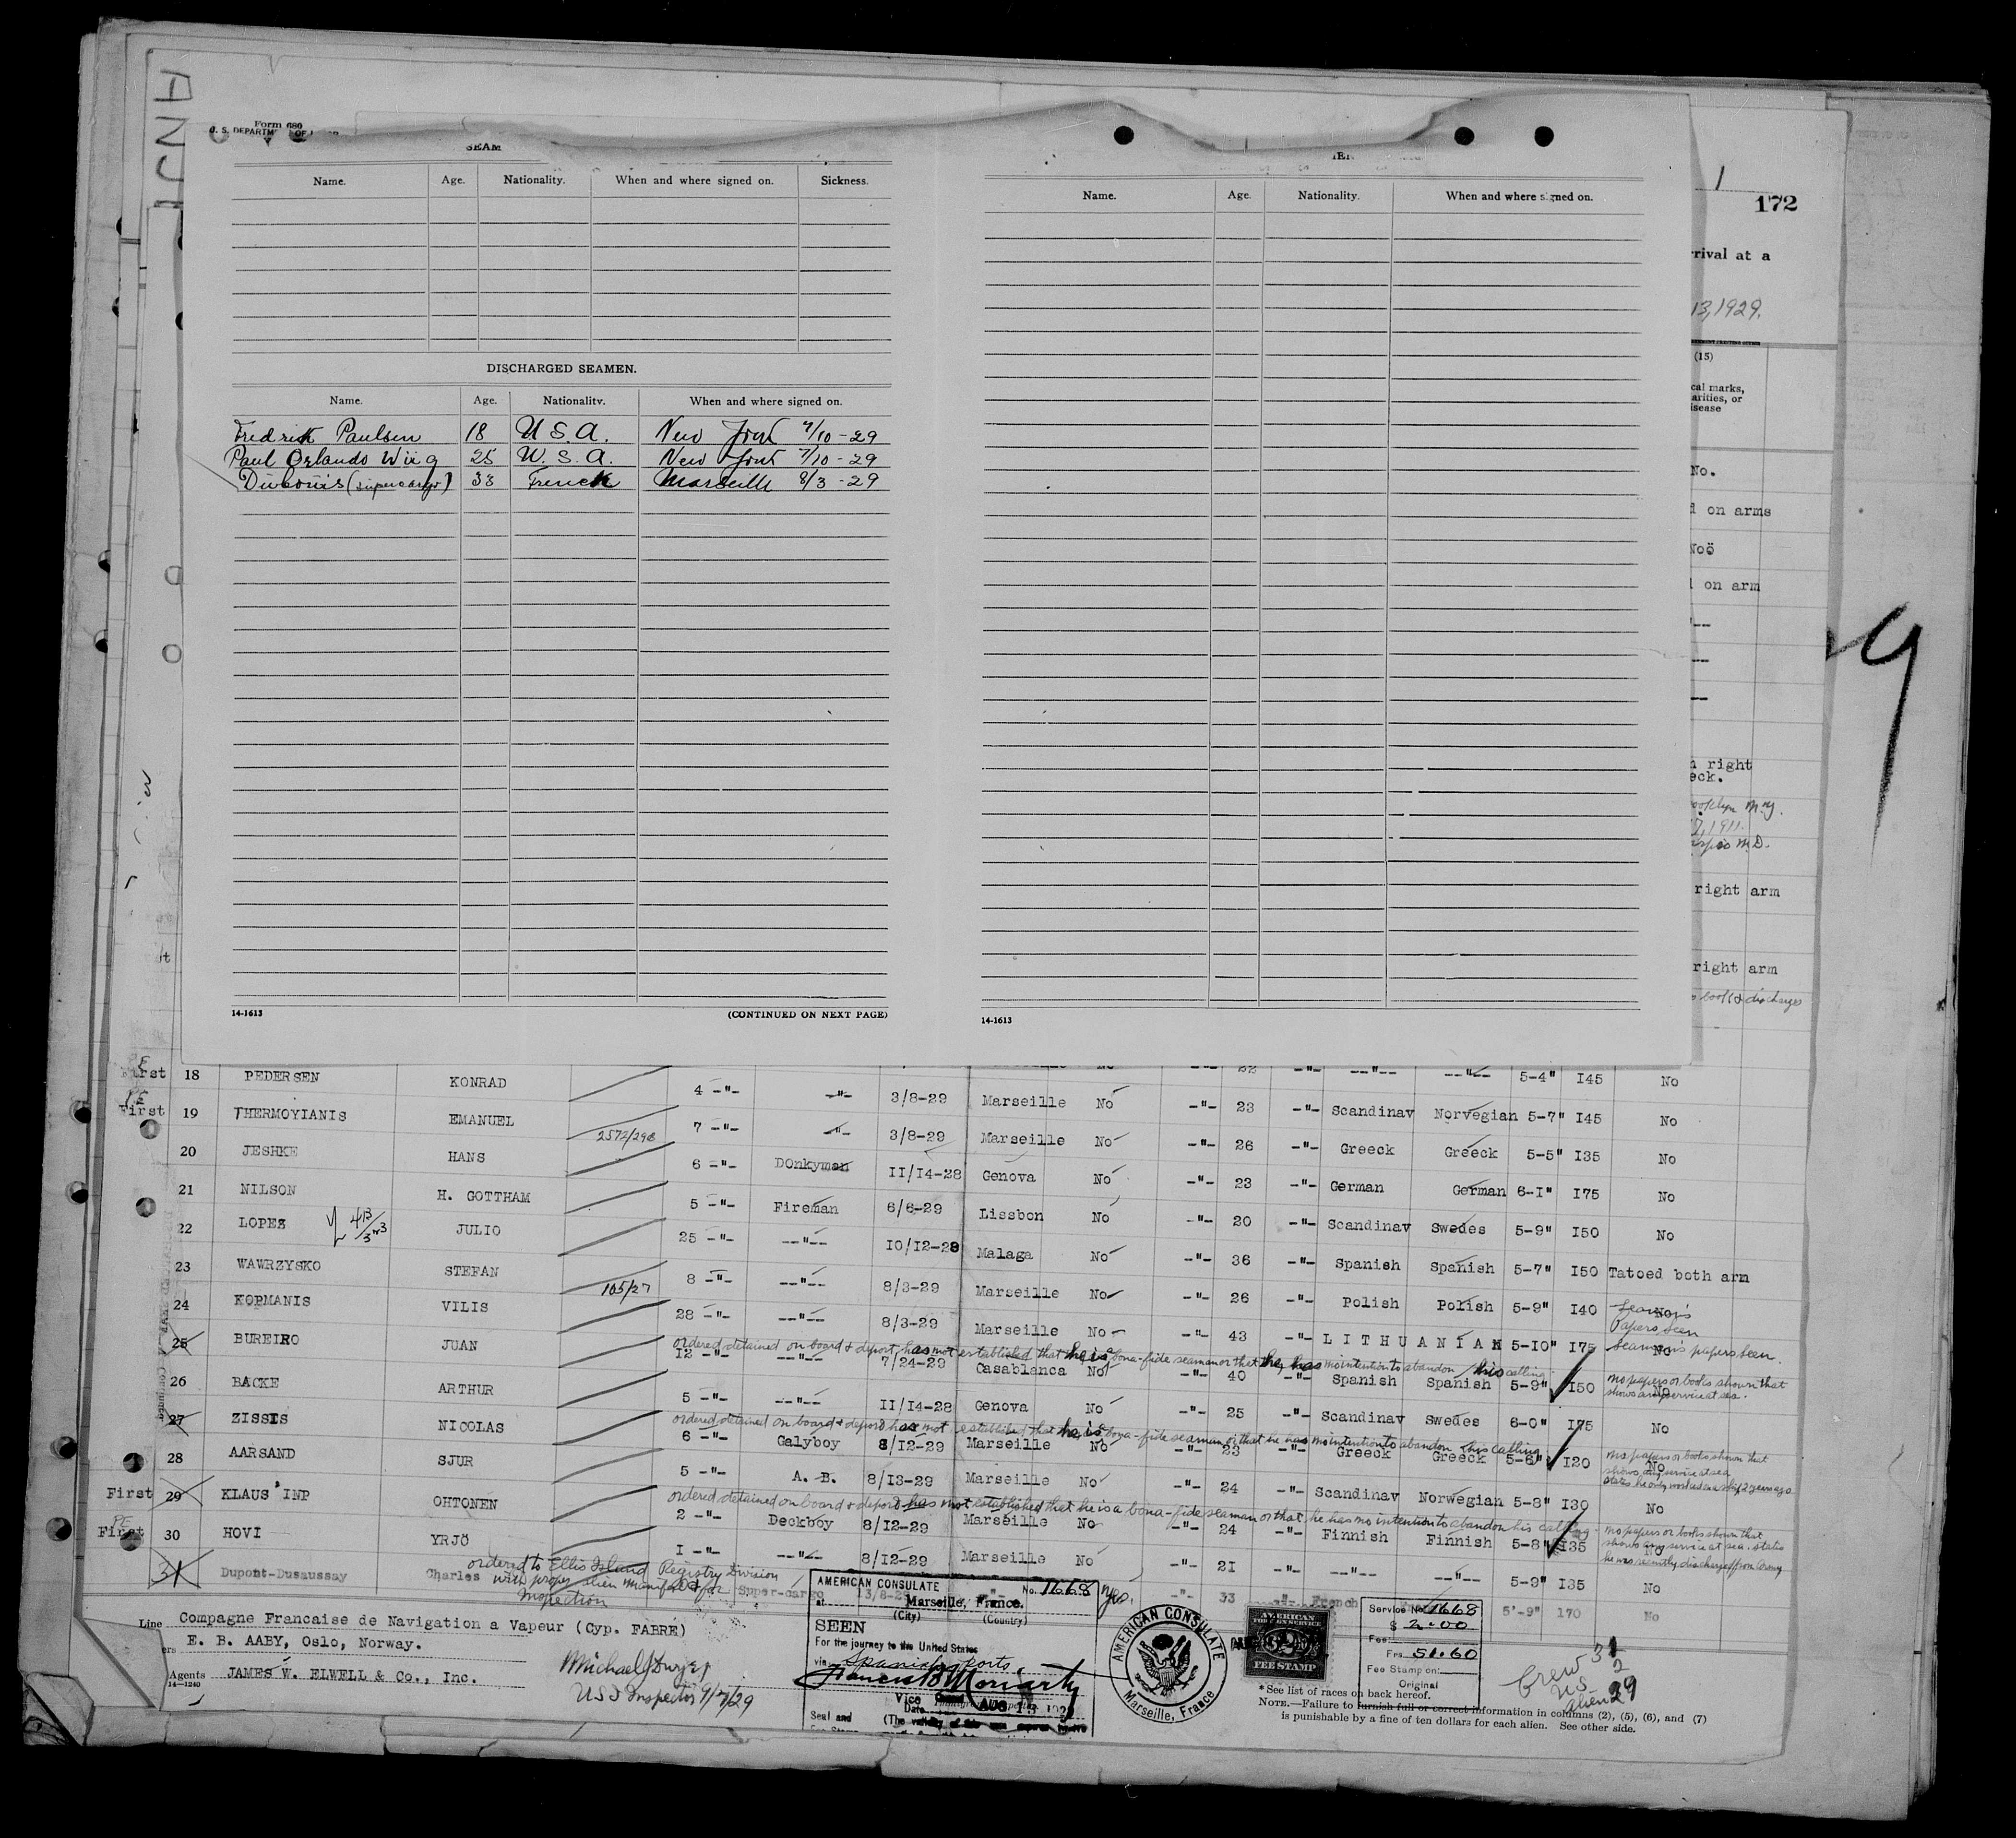 Form 680
U. S. DEPARTM OF
SEAM
Name. Age. Nationality. When and where signed on. Sickness.
DISCHARGED SEAMEN.
Name. Age. Nationality. When and where signed on.
Fredrik Paulsen 18 U.S.A. New York 7/10-29
Paul Orlando Wiig 25 U.S.A. New York 7/10-29
(supercargo) 33 French Marseille 8/3-29
14-1613 (CONTINUED ON NEXT PAGE)
Name. Age. Nationality. When and where signed on.
14-1613
1
172
rrival at a
13, 1929.
(15)
cal marks,
arities, or
isease
No.
d on arms
Noö
on arm
n right
eck.
7, 1911.
right arm
right arm
book & discharges
First 18 PEDERSEN KONRAD 4 -"- -"- 3/8-29 Marseille No -"- 23 -"- Scandinav Norwegian 5-7" I45 No
First 19 THERMOYIANIS EMANUEL 2572/298 7 -"- -"- 3/8-29 Marseille No -"- 26 -"- Greeck Greeck 5-5" I35 No
20 JESHKE HANS 6 -"- DOnkyman II/I4-28 Genova No -"- 23 -"- German German 6-I" I75 No
21 NILSON H. GOTTHAM 5 -"- Fireman 6/6-29 Lissbon No -"- 20 -"- Scandinav Swedes 5-9" I50 No
22 LOPEZ JULIO 25 -"- --"-- IO/I2-28 Malaga No -"- 36 -"- Spanish Spanish 5-7" I50 Tatoed both arm
23 WAWRZYSKO STEFAN 105/27 8 -"- --"-- 8/3-29 Marseille No -"- 26 -"- Polish Polish 5-9" I40 No
Seaman's Papers seen
24 KOPMANIS VILIS 28 -"- --"-- 8/3-29 Marseille No -"- 43 -"- LITHUANIAN 5-IO" I75 No
Seaman's papers seen.
ordered detained on board & deport has not established that he is bona-fide seaman or that he has no intention to abandon his calling
25 BUREIRO JUAN I2 -"- --"-- 7/24-29 Casablanca No -"- 40 -"- Spanish Spanish 5-9" I50 No
no papers or books shown that shows any service at sea.
26 BACKE ARTHUR 5 -"- --"-- II/I4-28 Genova No -"- 25 -"- Scandinav Swedes 6-0" I75 No
ordered detained on board & deport has not established that he is bona-fide seaman or that he has no intention to abandon his calling
27 ZISSIS NICOLAS 6 -"- Galyboy 8/I2-29 Marseille No -"- 23 -"- Greeck Greeck 5-6" I20 No
no papers or books shown that shows any service at sea
28 AARSAND SJUR 5 -"- A. B. 8/I3-29 Marseille No -"- 24 -"- Scandinav Norwegian 5-8" I30 No
ordered detained on board & deport has not established that he is a bona-fide seaman or that he has no intention to abandon his calling
First 29 KLAUS'INP OHTONEN 2 -"- Deckboy 8/I2-29 Marseille No -"- 24 -"- Finnish Finnish 5-8" I35 No
no papers or books shown that shows any service at sea. States he was recently discharged from Army
First 30 HOVI YRJÖ I -"- --"-- 8/I2-29 Marseille No -"- 2I -"- --"-- --"-- 5-9" I35 No
31 Dupont-Dusaussay Charles Super-cargo 13/8-29 -"- 33 -"- French 5'-9" 170 No
ordered to Ellis Island Registry Division
with proper alien manifest for
Inspection
Line Compagne Francaise de Navigation a Vapeur (Cyp. FABRE)
ers E. B. AABY, Oslo, Norway.
Agents JAMES W. ELWELL & Co., Inc.
14-1240
Michael J Dwyer
U S I Inspector 9/7/29
AMERICAN CONSULATE No. 1668
at Marseille, France.
(City) (Country)
SEEN
For the journey to the United States
via Spanish ports
Francis B Moriarty
Vice
Date AUG 13 1929
(The validity of this
Seal and
Fee Stamp
AMERICAN CONSULATE
Marseille, France
AMERICAN
FOREIGN SERVICE
FEE STAMP
Service No. 1668
Fee: $ 2.00
Frs 51.60
Fee Stamp on:
Original
Crew 31
U.S. 2
Alien 29
* See list of races on back hereof.
NOTE.—Failure to furnish full or correct information in columns (2), (5), (6), and (7)
is punishable by a fine of ten dollars for each alien. See other side.